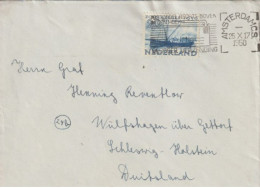 AMSTERDAM C.S.
25 X 17
1950
NEDERLAND
Herrn Graf
Henning Reventlow
Wulfshagen über Gettorf
Schleswig-Holstein
Duitsland